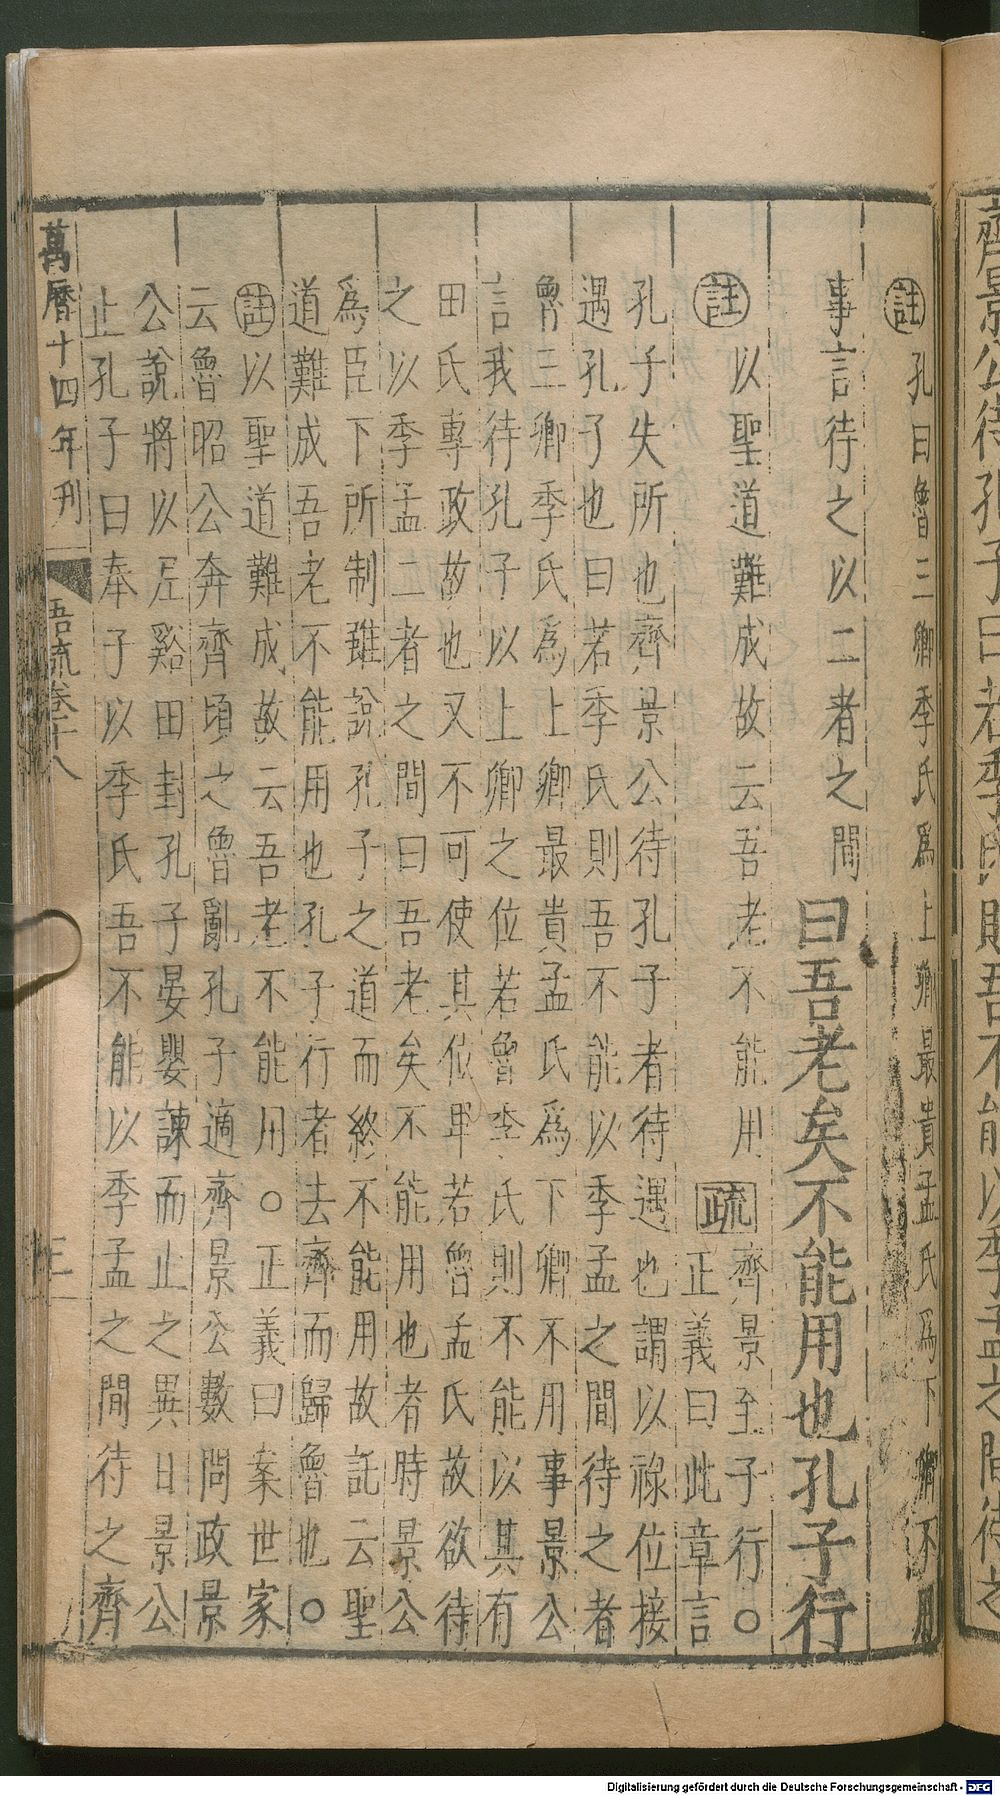 齊景公待孔子曰若季氏則吾不能以季孟之間待之
註孔曰魯三卿季氏爲上卿最貴孟氏爲下卿不用
事言待之以二者之間曰吾老矣不能用也孔子行
註以聖道難成故云吾老不能用疏齊景至子行○
正義曰此章言
孔子失所也齊景公待孔子者待遇也謂以祿位接
遇孔子也曰若季氏則吾不能以季孟之間待之者
魯三卿季氏爲上卿最貴孟氏爲下卿不用事景公
言我待孔子以上卿之位若魯季氏則不能以其有
田氏專政故也又不可使其位卑若魯孟氏故欲待
之以季孟二者之間曰吾老矣不能用也者時景公
爲臣下所制雖說孔子之道而終不能用故託云聖
道難成吾老不能用也孔子行者去齊而歸魯也○
註以聖道難成故云吾老不能用○正義曰案世家
云魯昭公奔齊頃之魯亂孔子適齊景公數問政景
公說將以尼谿田封孔子晏嬰諫而止之異日景公
止孔子曰奉子以季氏吾不能以季孟之間待之齊
萬曆十四年刊
吾疏卷十八
三
Digitalisierung gefördert durch die Deutsche Forschungsgemeinschaft - DFG